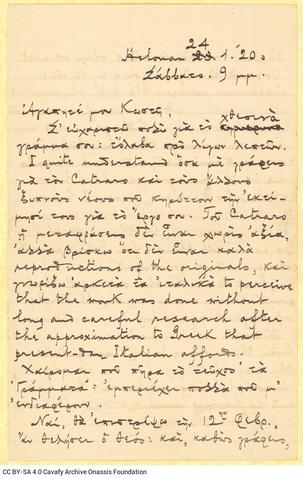 Helouan 24 1.20
Σάββατο. 9 μμ.
Αγαπητέ μου Κωστή,
Σ' ευχαριστώ πολύ για το χθεσινό
γράμμα σου: έλαβα προ λίγων λεπτών.
I quite understand όσα με γράφεις
για το Catraro και τους άλλους
ξυπνούς νέους που κηρύττουν την εκτί-
μησή τους για το έργο σου. Του Catraro
η μετάφρασις δεν είναι χωρίς αξία,
αλλά βρίσκω ότι δεν είναι καλά
reproductions of the originals, και
γνωρίζω αρκετά τα ιταλικά to perceive
that the work was done without
long and careful research after
the approximation to Greek that
present-day Italian affords.
Χαίρομαι που πήρα το τεύχος τα
Γράμματα: εμπεριέχει πολλά που μ'
ενδιαφέρουν.
Ναι, θα επιστρέψω την 12ην Φεβρ.
αν θελήσει ο θεός: και, καθώς γράφεις,
CC BY-SA 4.0 Cavafy Archive Onassis Foundation